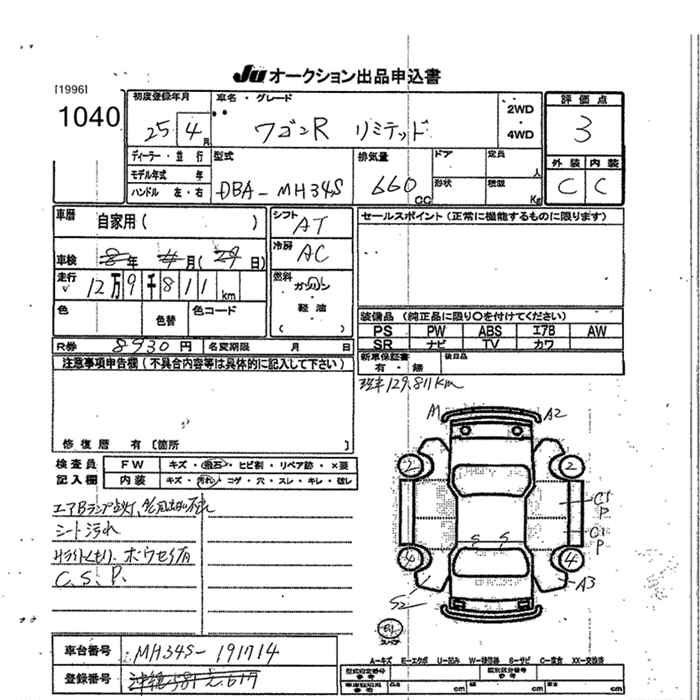 Ju オークション出品申込書
[1996]
1040
初度登録年月 車名・グレード 評価点
25 4月 ワゴンR リミテッド 2WD ・ 4WD 3
ディーラー・並行 型式 排気量 ドア 定員 人 外装 内装
モデル年式 年
ハンドル 左・右 DBA-MH34S 660 CC 形状 積載 Kg C C
車歴 自家用( ) シフト AT セールスポイント(正常に機能するものに限ります)
冷房 AC
車検 8年 4月(29日)
走行 12万9千811km 燃料 ガソリン
軽油
( )
色 色替 色コード 装備品(純正品に限り○を付けてください)
PS PW ABS エアB AW
SR ナビ TV カワ
R券 8930円 名変期限 月 日 新車保証書 有・無 後日品
注意事項申告欄(不具合内容等は具体的に記入して下さい)
現車129,811km
修復歴 有〔箇所
検査員 FW キズ・飛石・ヒビ割・リペア跡・×要
記入欄 内装 キズ・汚れ・コゲ・穴・スレ・キレ・破レ
エアBランプ点灯、
シート汚れ
C、S、P、
M A2
2 2
C1
P
S S
C1
P
4 4
S2 A3
車台番号 MH34S-191714
A-キズ E-エクボ U-凹み W-補修跡 S-サビ C-腐食 XX-交換済
登録番号
cm cm cm